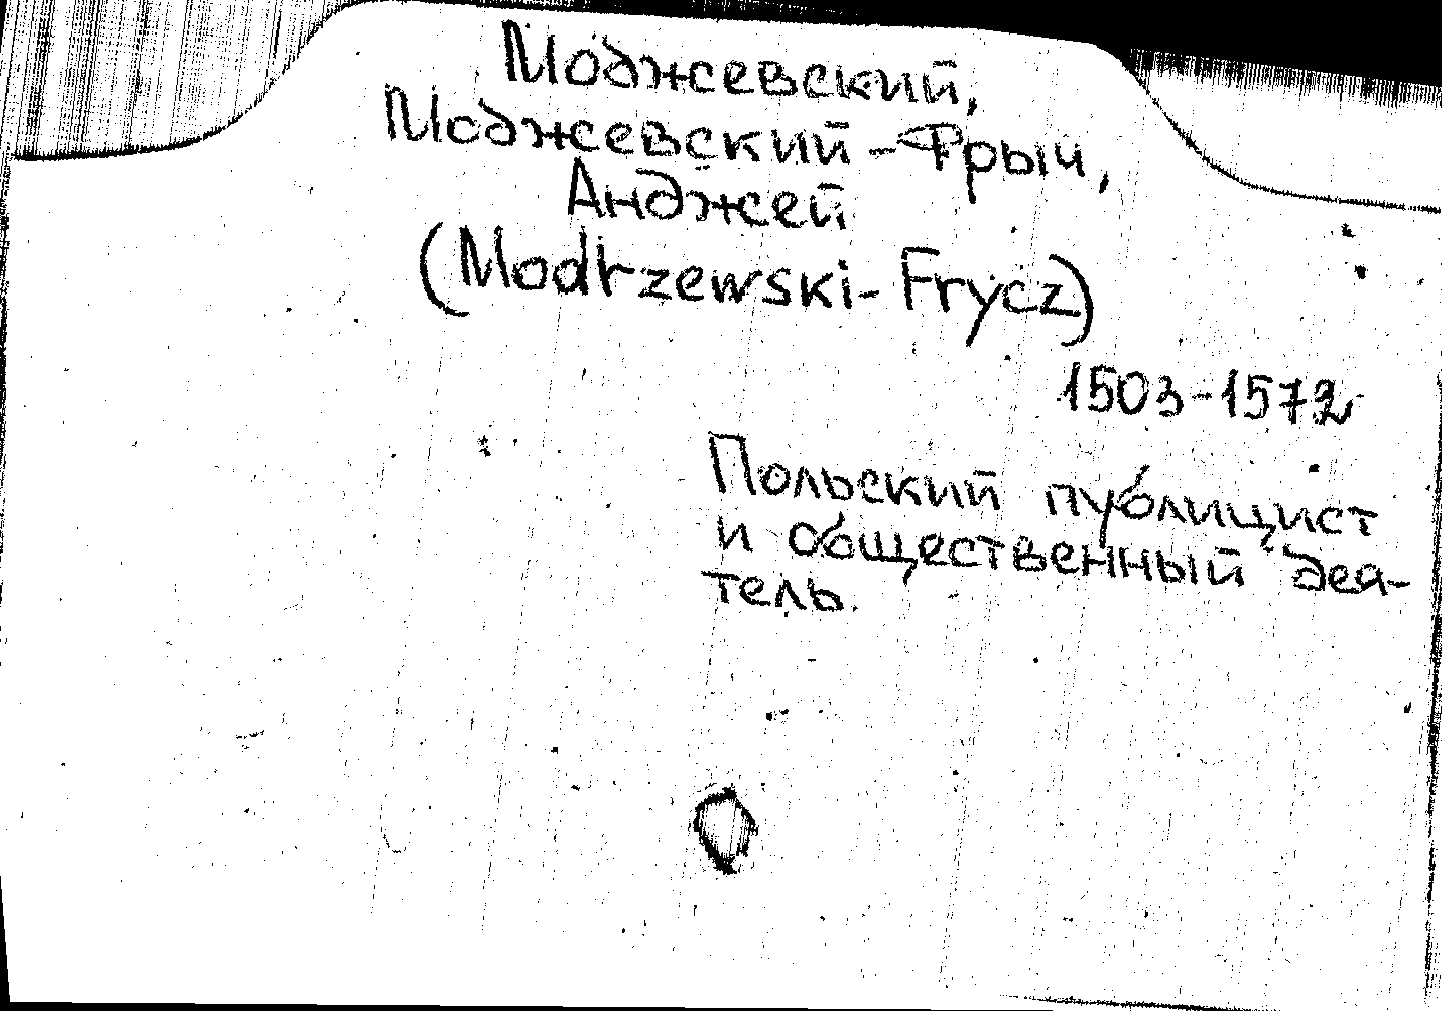 Моджевский,
Моджевский-Фрыч,
Анджей
(Modrzewski-Frycz)
1503-1572
Польский публицист
и общественный дея-
тель.